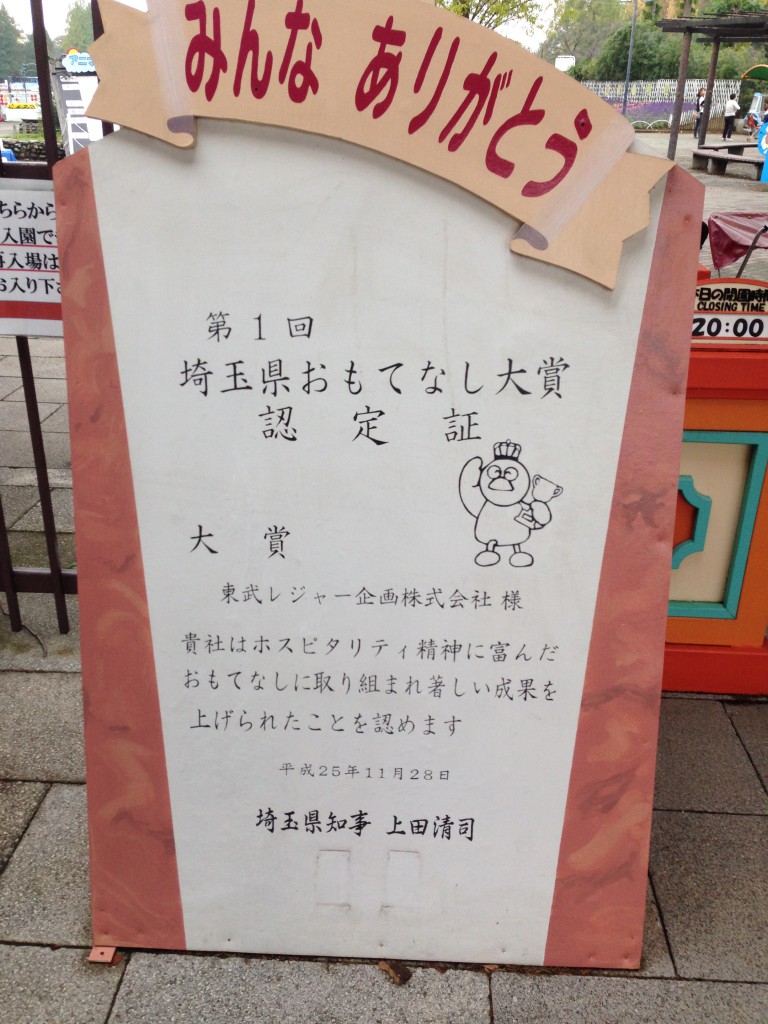 みんな ありがとう
アニマ
ちらから
入園で
再入場は
お入り下さ
本日の閉園時間
CLOSING TIME
20:00
第1回
埼玉県おもてなし大賞
認定証
大賞
東武レジャー企画株式会社 様
貴社はホスピタリティ精神に富んだ
おもてなしに取り組まれ著しい成果を
上げられたことを認めます
平成25年11月28日
埼玉県知事 上田清司